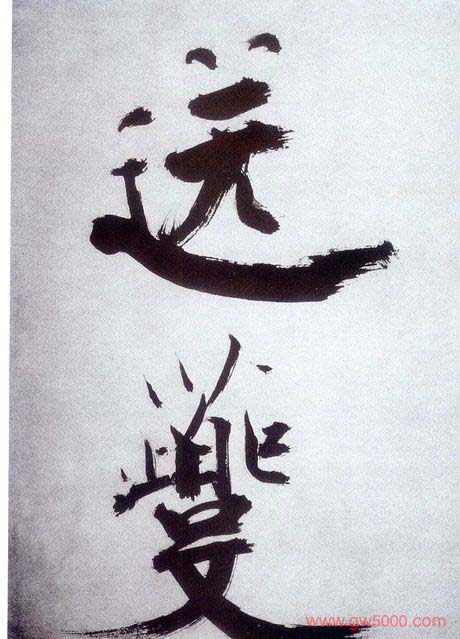 送
夔
www.gw5000.com